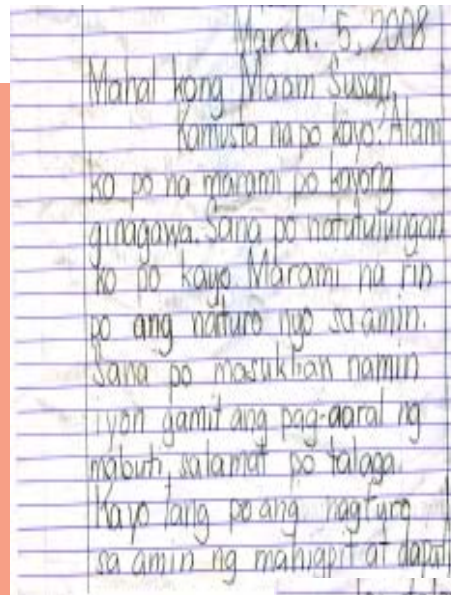 March. 5, 2008
Mahal kong Maam Susan,
Kamusta na po kayo? Alam
ko po na marami po kayong
ginagawa. Sana po natutulungan
ko po kayo Marami na rin
po ang naturo nyo sa amin.
Sana po masuklian namin
iyon gamit ang pag-aaral ng
mabuti, salamat po talaga.
Kayo lang po ang nagturo
sa amin ng mahigpit at dapat